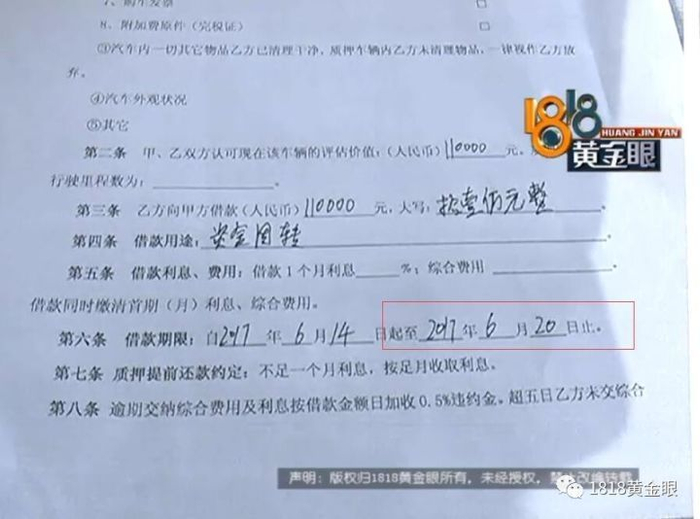 7、购车发票 □
8、附加费原件（完税证） □
③汽车内一切其它物品乙方已清理干净，质押车辆内乙方未清理物品，一律视作乙方放
弃。
④汽车外观状况
⑤其它
第二条 甲、乙双方认可现在该车辆的评估价值：（人民币）110000 元。
行驶里程数为：
第三条 乙方向甲方借款（人民币）110000 元，大写：拾壹佰元整
第四条 借款用途：资金周转
第五条 借款利息、费用：借款1个月利息 %；综合费用
借款同时缴清首期（月）利息、综合费用。
第六条 借款期限：自2017 年 6 月 14 日起至 2017 年 6 月 20 日止。
第七条 质押提前还款约定：不足一个月利息，按足月收取利息。
第八条 逾期交纳综合费用及利息按借款金额日加收0.5%违约金。超五日乙方未交综合
1818
HUANG JIN YAN
黄金眼
声明：版权归1818黄金眼所有，未经授权，禁止改编转载
1818黄金眼